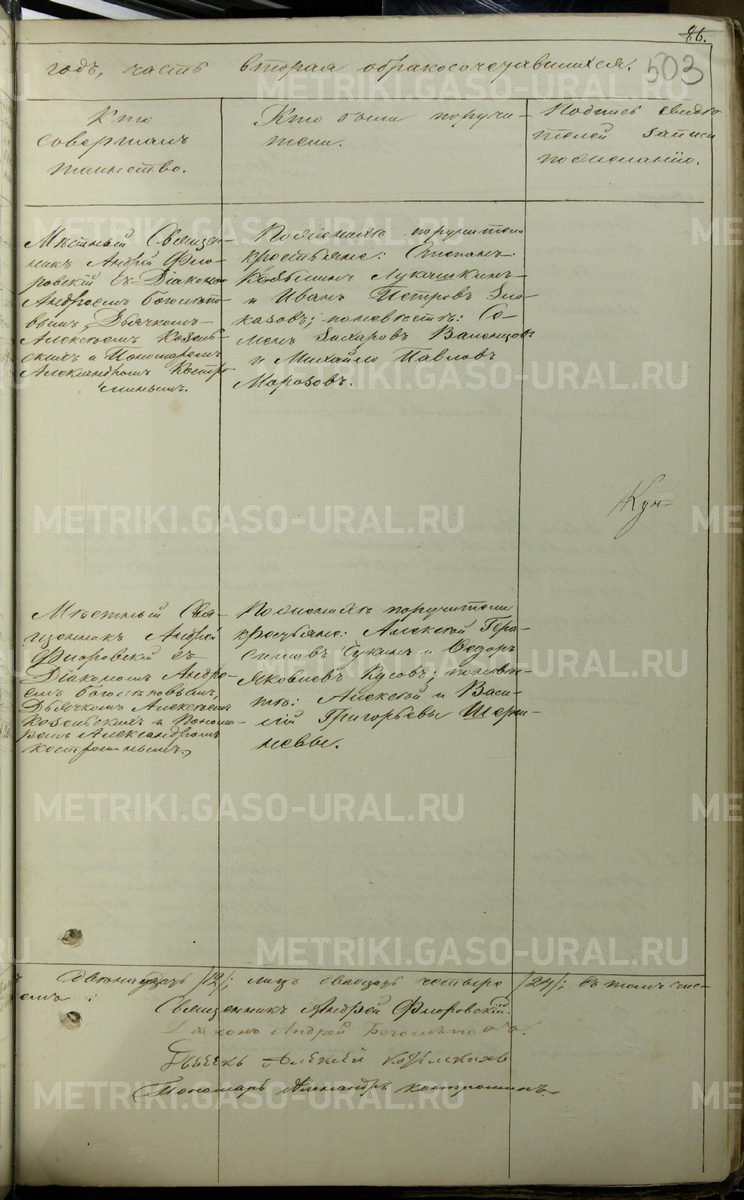 86.
503
годъ, часть вторая о бракосочетавшихся.
Кто
совершалъ
таинство.
Кто были поручи-
тели.
Подпись свидѣ
телей записи
по желанію.
Мѣстный Священ-
никъ Андрей Фло-
ровскій съ Діакономъ
Андреемъ Боголѣпо-
вымъ, Дьячкомъ
Алексѣемъ Козель-
скихъ и Пономаремъ
Александромъ Костро-
минымъ.
По женихѣ поручители
крестьяне: Степанъ
Лукашкинъ
и Иванъ Петровъ Зло-
казовъ; по невѣстѣ: Се-
менъ Захаровъ
и Михайло Павловъ
Морозовъ.
Кун-
Мѣстный Свя-
щенникъ Андрей
Флоровскій съ
Діакономъ Андре-
емъ Боголѣповымъ,
Дьячкомъ Алексѣемъ
Козельскихъ и Поно-
ремъ Александромъ
Костроминымъ,
По женихѣ поручители
крестьяне: Алексѣй Гера-
симовъ Чукинъ и Ѳедоръ
Яковлевъ Кусовъ; по невѣ-
стѣ: Алексѣй и Васи-
лій Григорьевы
двенадцать /12/; лицъ двадцать четыре /24/; въ томъ чис-
Священникъ Андрей Флоровскій.
Діаконъ Андрей Боголѣповъ.
Дьячекъ Алексѣй Козельскихъ
Пономарь Александръ Костроминъ
METRIKI.GASO-URAL.RU